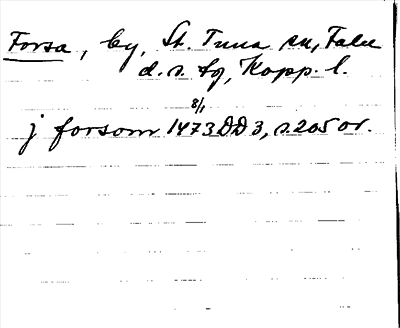 Forsa, by, St. Tuna sn, Falu
d. s. tg, Kopp. l.
8/1
j forsom 1473 DD 3, s. 205 or.